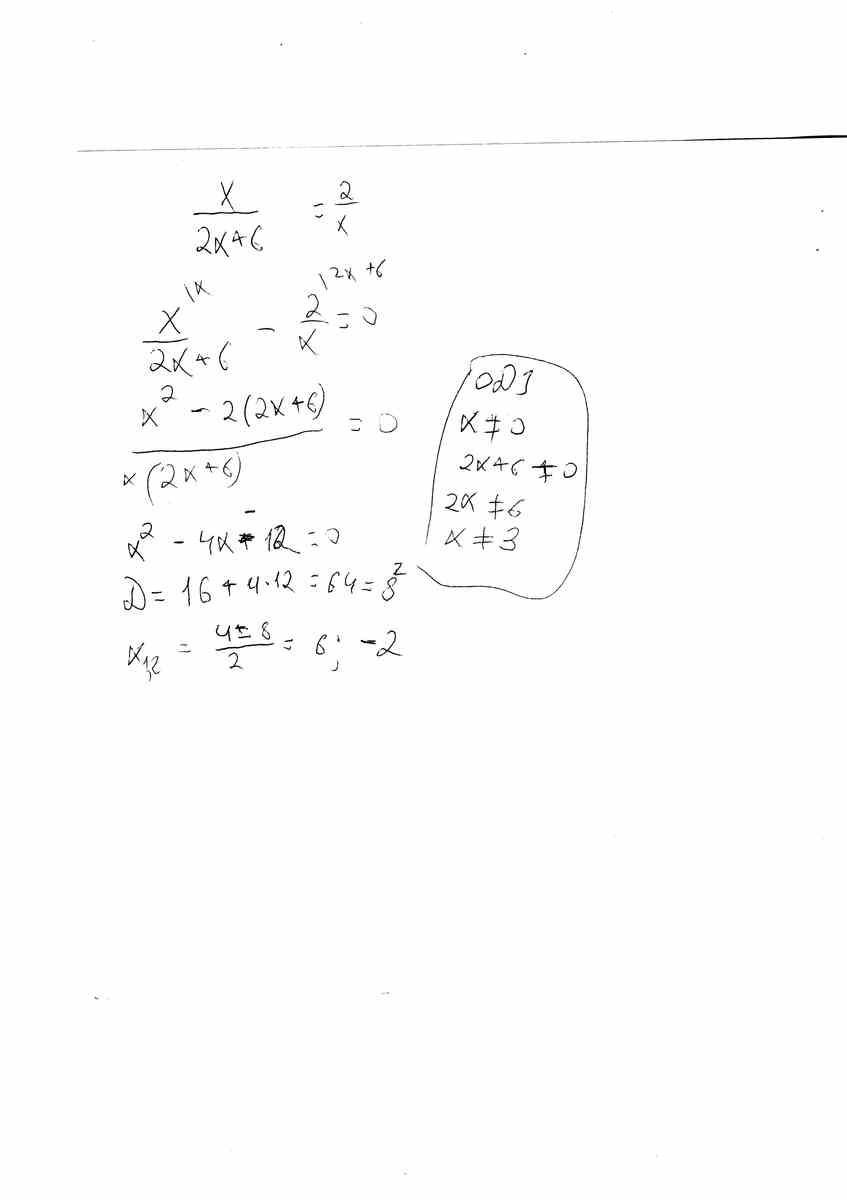 x/(2x+6) = 2/x
x/(2x+6) |x - 2/x |2x+6 = 0
(x² - 2(2x+6))/(x(2x+6)) = 0
x² - 4x - 12 = 0
D = 16 + 4·12 = 64 = 8²
x₁,₂ = (4±8)/2 = 6; -2
ОДЗ
x ≠ 0
2x+6 ≠ 0
2x ≠ 6
x ≠ 3